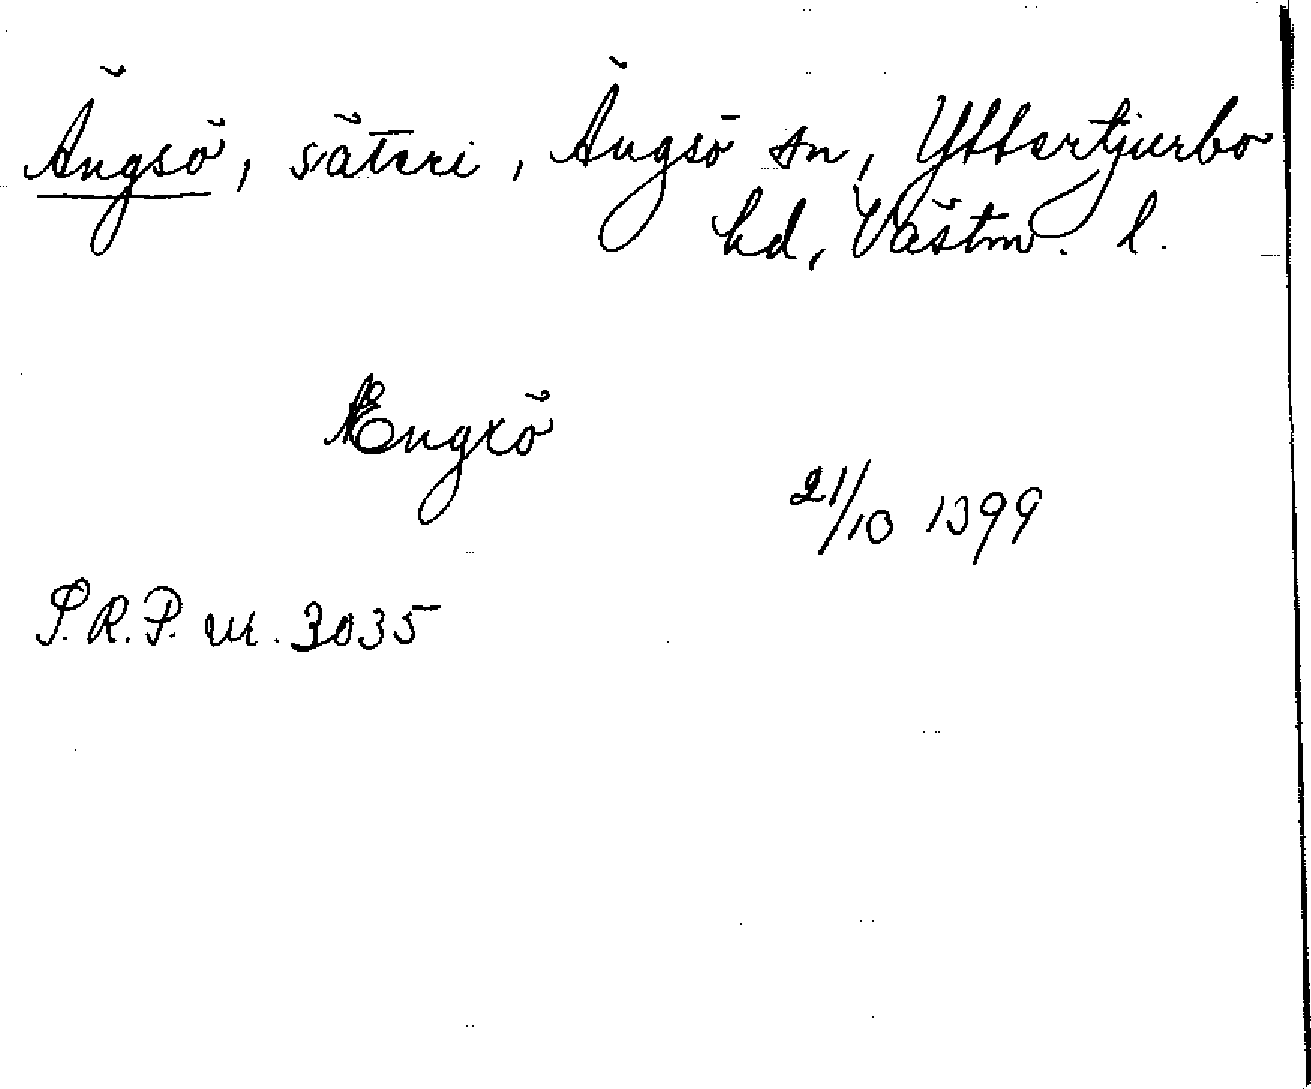 Ängsö, säteri, Ängsö sn, Yttertjurbo
hd, Västm. l.
Engxö
21/10 1399
S.R.P. nr. 3035